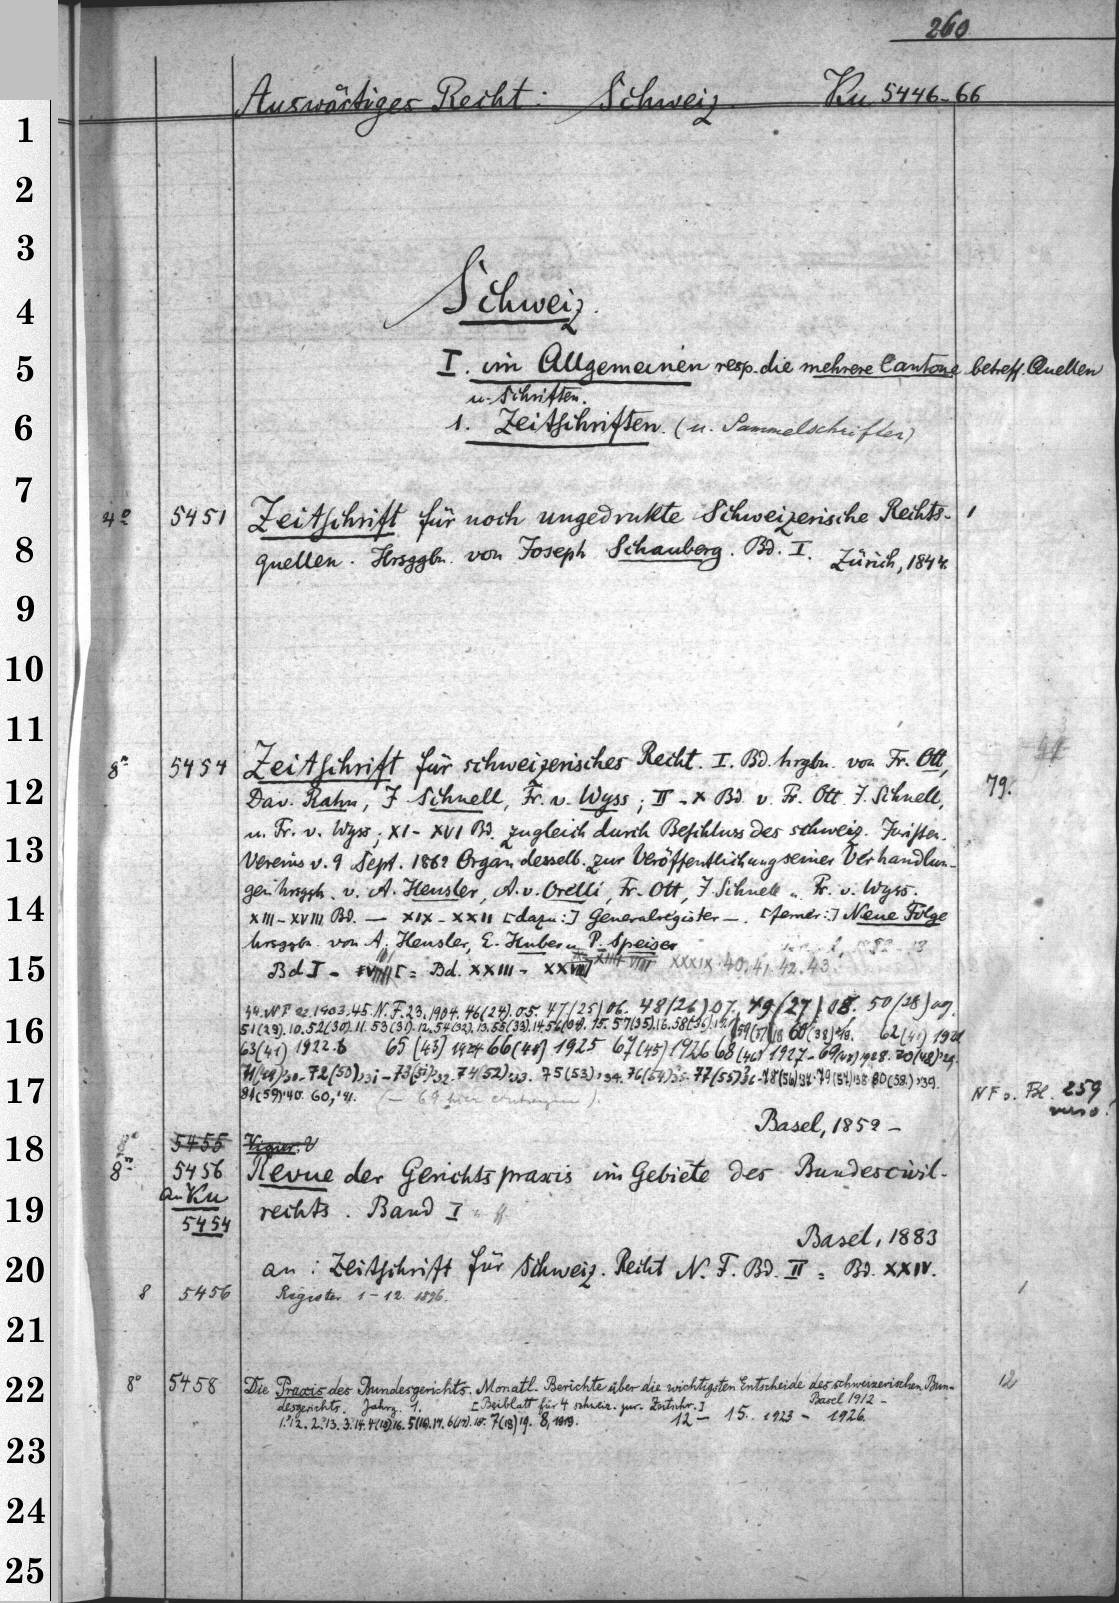 260
Auswärtiges Recht: Schweiz. Ku 5446-66
Schweiz.
I. im Allgemeinen resp. die mehrere Cantone betreff. Quellen
u. Schriften.
1. Zeitschriften. (u. Sammelschriften)
4° 5451 Zeitschrift für noch ungedrukte Schweizerische Rechts- 1
quellen. Hrsggbn. von Joseph Schauberg. Bd. I. Zürich, 1844.
8° 5454 Zeitschrift für schweizerisches Recht. I. Bd. hrgbn. von Fr. Ott,
Dav. Rahn, J Schnell, Fr. v. Wyss; II-X Bd. v. Fr. Ott J. Schnell, 79.
u. Fr. v. Wyss; XI-XVI Bd. zugleich durch Beschluss des schweiz. Juristen.
Vereins v. 9 Sept. 1862 Organ desselb. zur Veröffentlichung seiner Verhandlun-
gen hrsggb. v. A. Heusler, A. v. Orelli, Fr. Ott, J Schnell u. Fr. v. Wyss.
XIII-XVIII Bd. — XIX-XXII [dazu:] Generalregister —. [ferner:] Neue Folge
hrsggbn. von A. Heusler, E. Huber u. P. Speiser
Bd I - = Bd. XXIII - XXXIX 40. 41. 42. 43
44. N F 22. 1903. 45. N. F. 23. 1904. 46(24). 05. 47(25) 06. 48(26) 07. 49(27) 08. 50(28) 09.
51(29). 10. 52(30). 11. 53(31). 12. 54(32). 13. 55(33). 14. 56(34). 15. 57(35). 16. 58(36). 60(38) 62(41) 1921
63(41) 1922. 65 (43) 1924 66(44) 1925 67(45) 1926 68(46) 1927 - 69(47) 1928. 70(48) 29.
71(49) 30 - 72(50) 31 - 73(51) 32. 74(52) 33. 75(53) 34. 76(54) 35. 77(55) 36. 78(56) 37. 79(57) 38 80(58) 39.
81(59) 40. 60, 41. N F s. Bl. 259
verso.
Basel, 1852 -
5455
8° 5456 Revue der Gerichtspraxis im Gebiete des Bundescivil-
an Ku rechts. Band I
5454 Basel, 1883
an: Zeitschrift für Schweiz. Recht N. F. Bd. II = Bd. XXIV.
8 5456 Register 1-12. 1896. 1
8° 5458 Die Praxis des Bundesgerichts. Monatl. Berichte über die wichtigsten Entscheide des schweizerischen Bun- 12
desgerichts. Jahrg. 1. [Beiblatt für 4 schweiz. jur. Zeitschr.] Basel 1912 -
1.'12. 2.'13. 3.'14. 4(15)16. 5(16).17. 6(17).18. 7(18)19. 8, 1919. 12 - 15. 1923 - 1926.
1
2
3
4
5
6
7
8
9
10
11
12
13
14
15
16
17
18
19
20
21
22
23
24
25